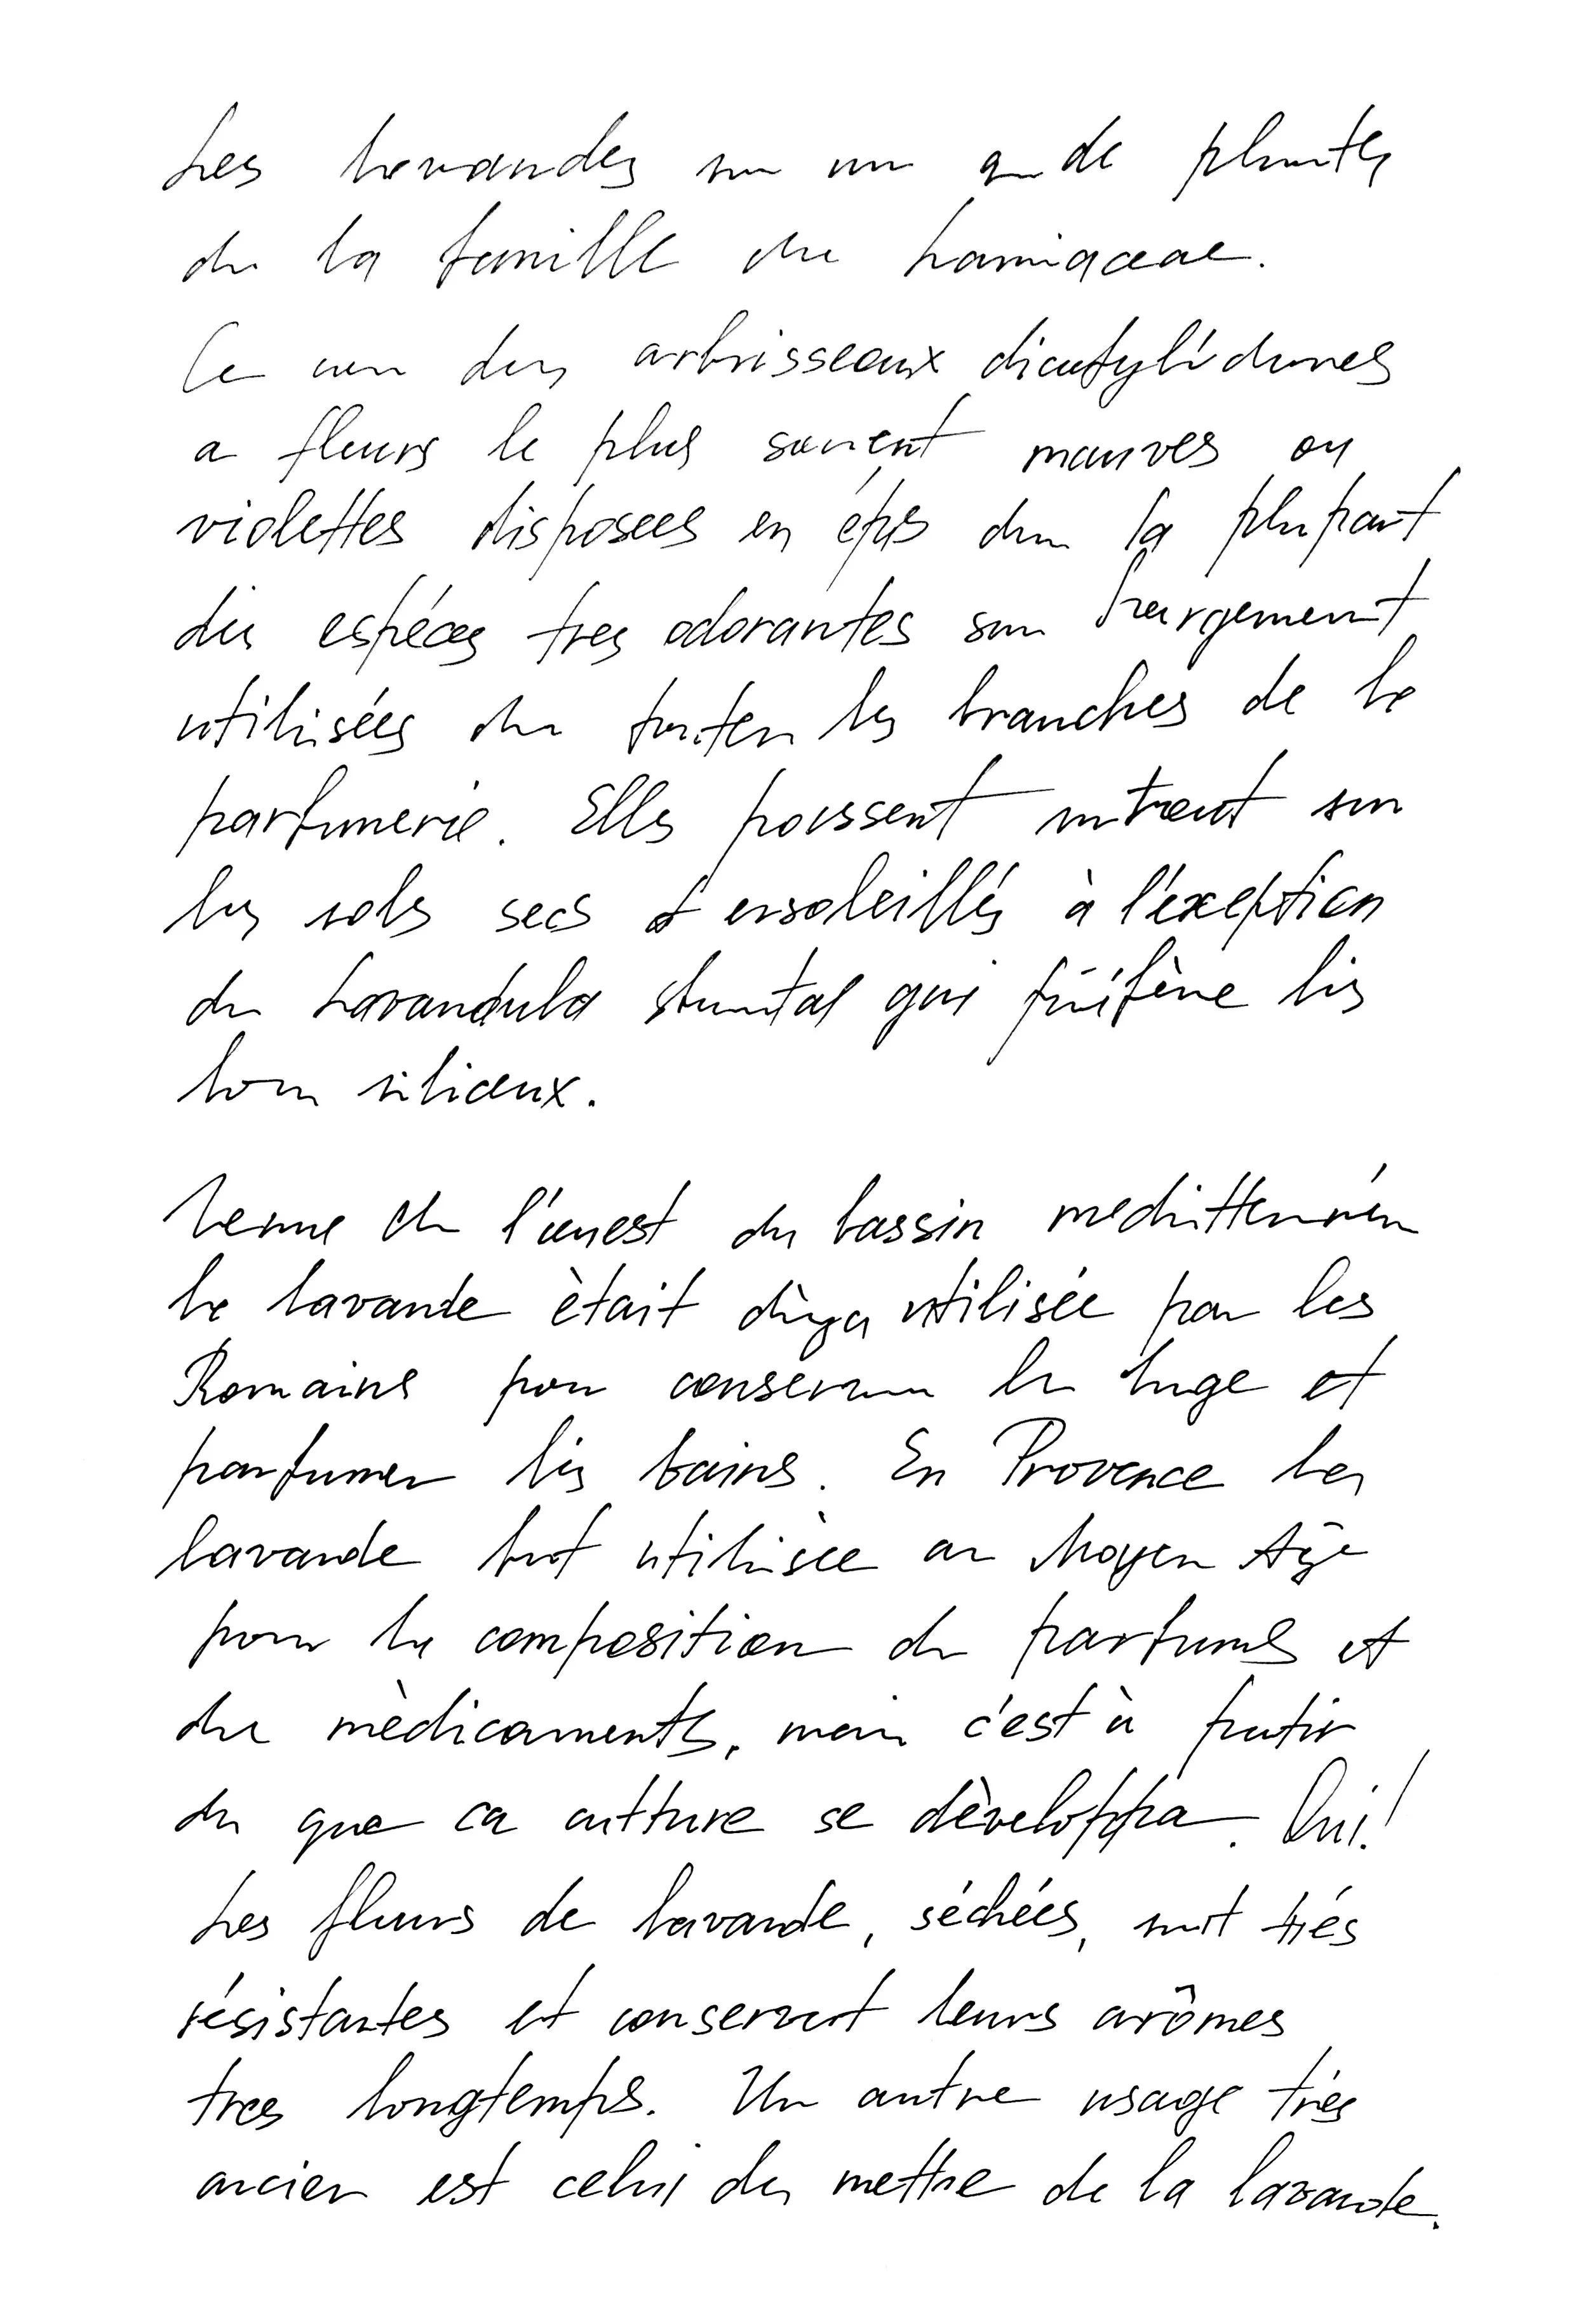 Les lavandes un de plantes
de la famille des Lamiaceae.
Ce des arbrisseaux dicotylédones
a fleurs le plus souvent mauves ou
violettes disposees en épis dans la plupart
des espéces tres odorantes sont largement
utilisées dans toutes les branches de la
parfumerie. Elles poussent surtout sur
les sols secs et ensoleillés à l'exeption
de Lavandula qui préfère les
siliceux.
Venue de l'ouest du bassin mediterranéen
la lavande ètait utilisée par les
Romains pour conserver le linge et
parfumer les bains. En Provence la
lavande fut utilisèe au Moyen Age
pour la composition de parfums et
de mèdicaments, mais c'est à partir
du que ca culture se dèveloppa. Oui!
Les fleurs de lavande, séchées, sont trés
résistantes et conservent leurs arômes
tres longtemps. Un autre usage trés
ancien est celui de mettre de la lavande.